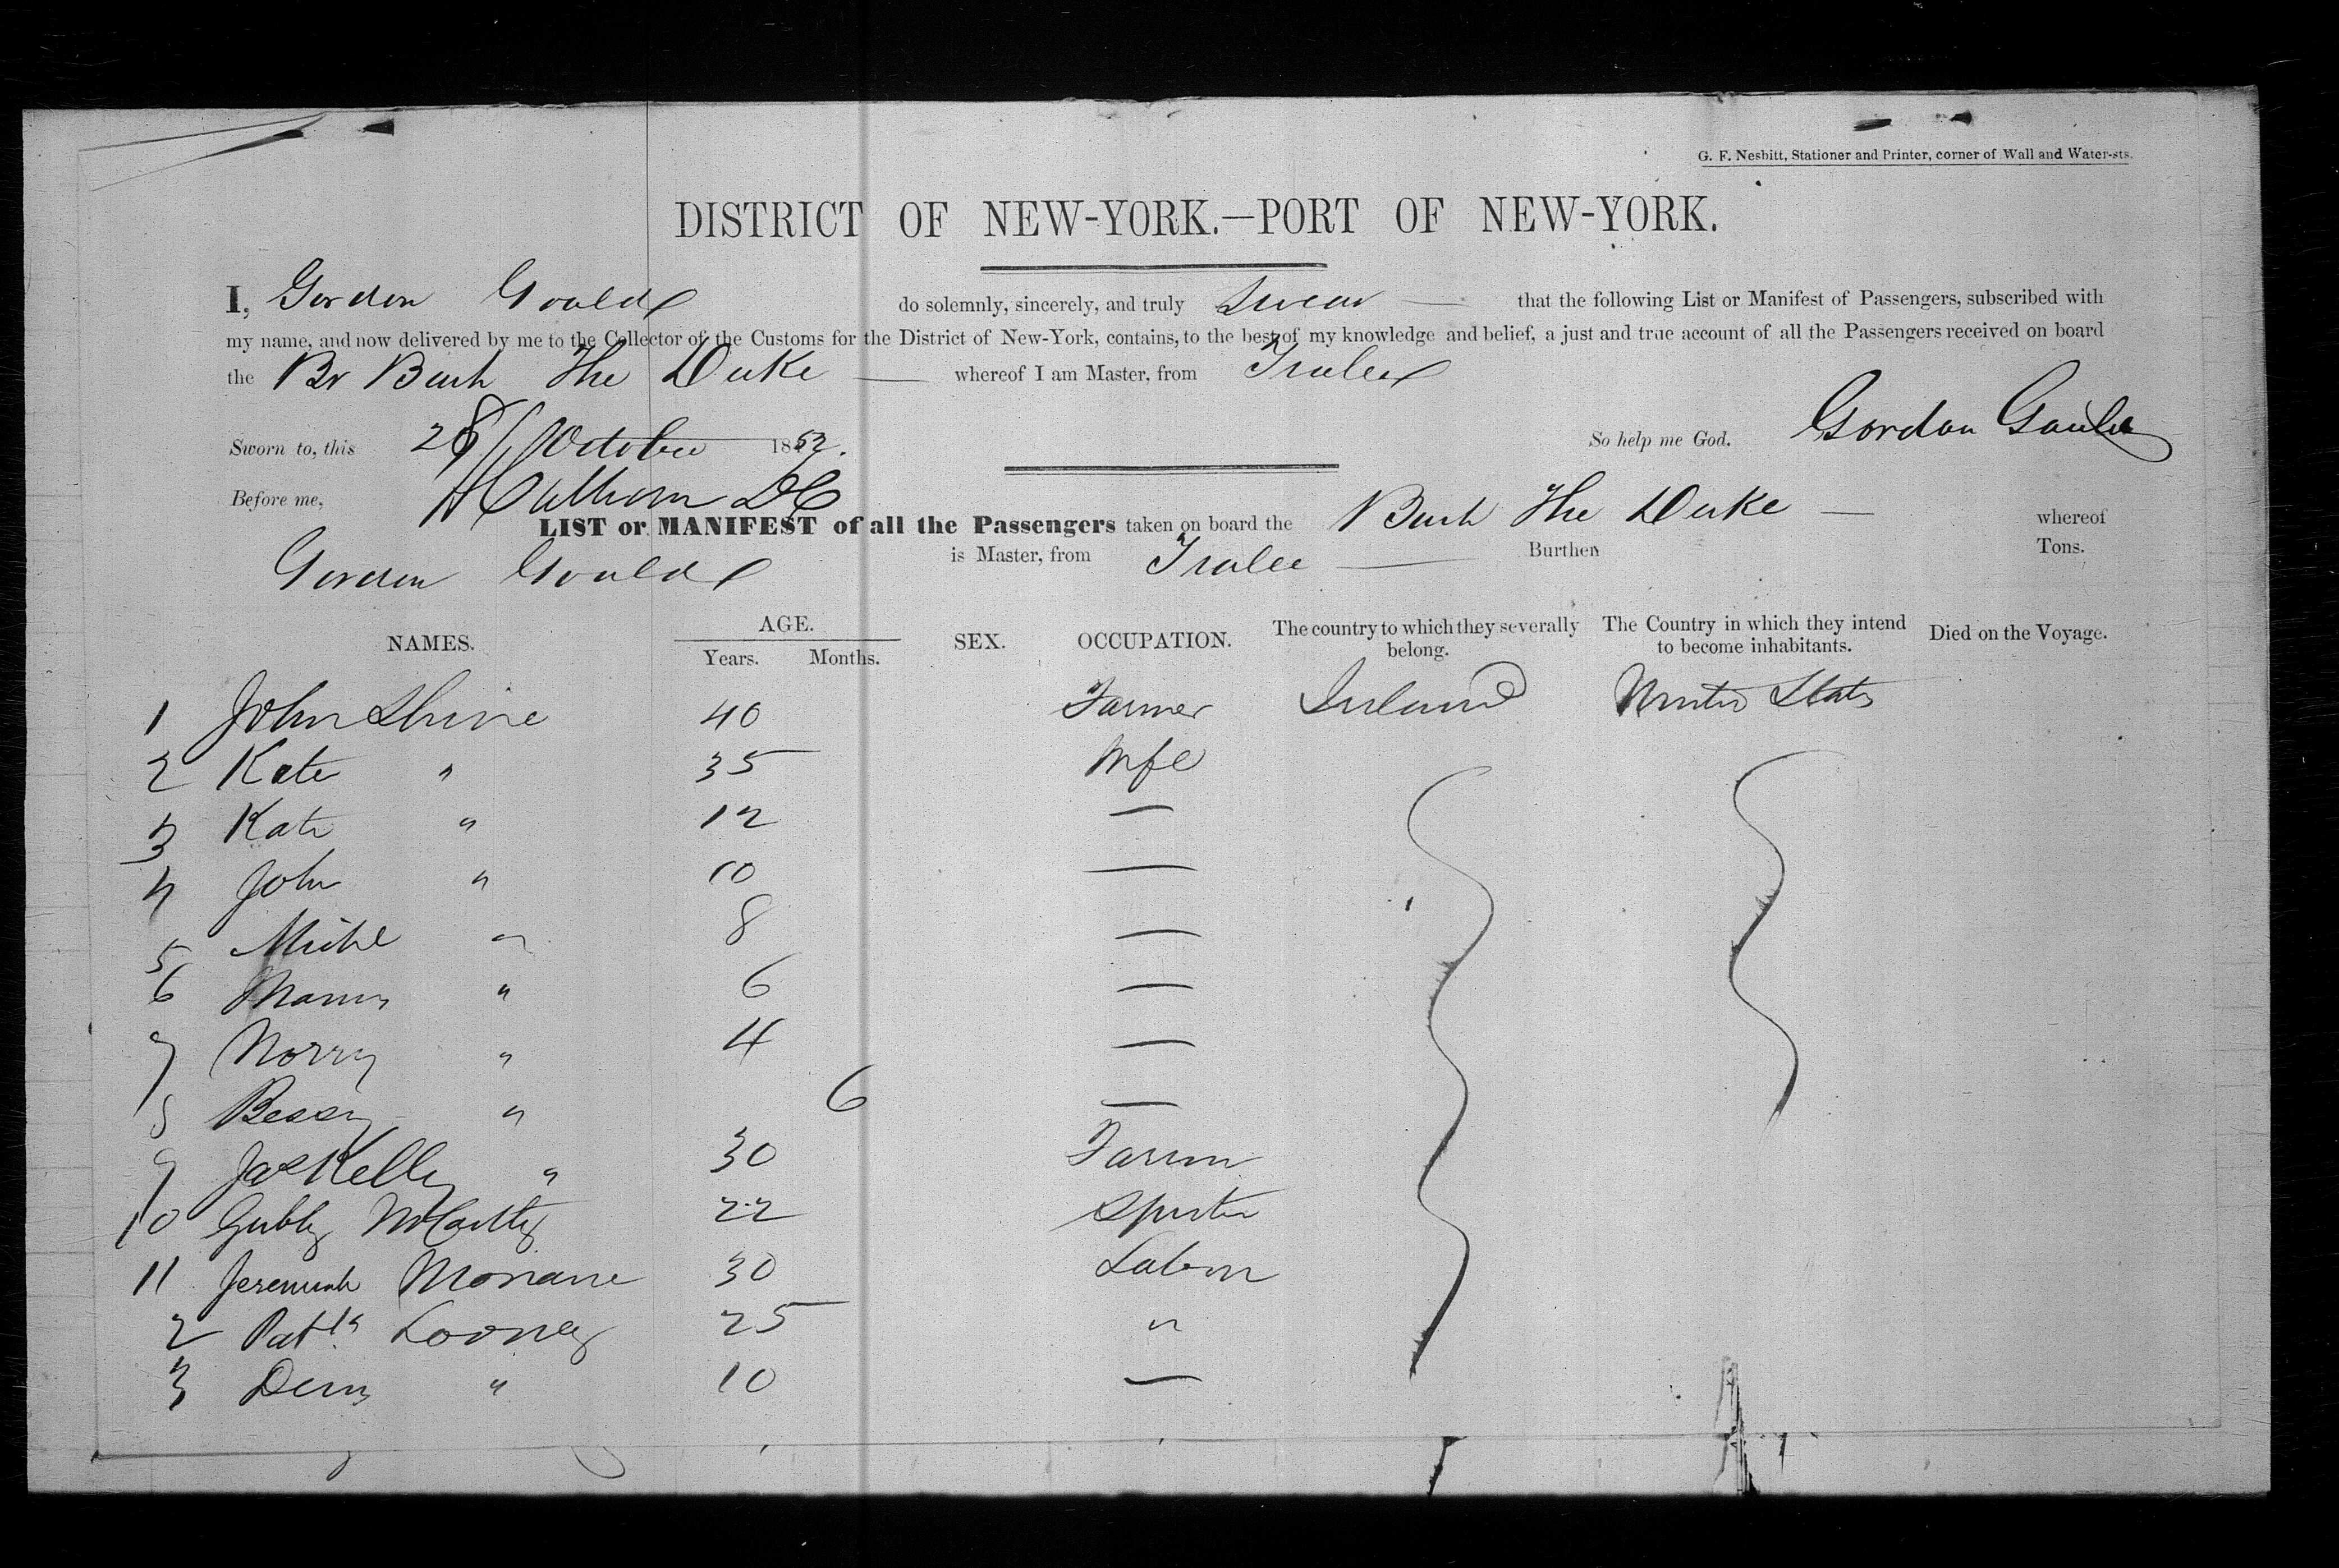 G. F. Nesbitt, Stationer and Printer, corner of Wall and Water-sts.
DISTRICT OF NEW-YORK.—PORT OF NEW-YORK.
I, Gordon Gould do solemnly, sincerely, and truly Swear — that the following List or Manifest of Passengers, subscribed with
my name, and now delivered by me to the Collector of the Customs for the District of New-York, contains, to the best of my knowledge and belief, a just and true account of all the Passengers received on board
the Br Bark The Duke — whereof I am Master, from Tralee
Sworn to, this 28 October 1852. So help me God. Gordon Gould
Before me,
LIST or MANIFEST of all the Passengers taken on board the Bark The Duke — whereof
Gordon Gould is Master, from Tralee — Burthen Tons.
NAMES. AGE. Years. Months. SEX. OCCUPATION. The country to which they severally belong. The Country in which they intend to become inhabitants. Died on the Voyage.
1 John Shine 40 Farmer Ireland United States
2 Kate " 35 Wife
3 Kate " 12 —
4 John " 10 —
5 Michl " 8 —
6 " 6 —
7 Norry " 4 —
8 Bessy " 6 —
9 Jas Kelly " 30 Farmer
10 McCarthy 22 Spinster
11 Jeremiah 30 Labour
2 Patk Looney 25 "
3 Denis " 10 —